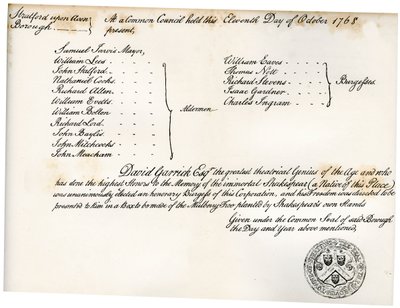 Stratford upon Avon At a Common Council held this Eleventh Day of October 1768
Borough present,
Samuel Jarvis Mayor,
William Lees
John Halford
Nathaniel Cooks
Richard Allen
William Evetts
William Bolton
Richard Lord
John Bayliss
John Hitchcocks
John Meacham
Aldermen
William Eaves
Thomas Nott
Richard Stevens
Isaac Gardner
Charles Ingram
Burgesses
David Garrick Esqr the greatest theatrical Genius of the Age and who
has done the highest Honor to the Memory of the immortal Shakespear (a Native of this Place)
was unanimously elected an honorary Burgess of this Corporation, and his Freedom was directed to be
presented to him in a Box to be made of the Mulberry Tree planted by Shakespear's own Hands
Given under the Common Seal of said Borough
the Day and Year above mentioned,